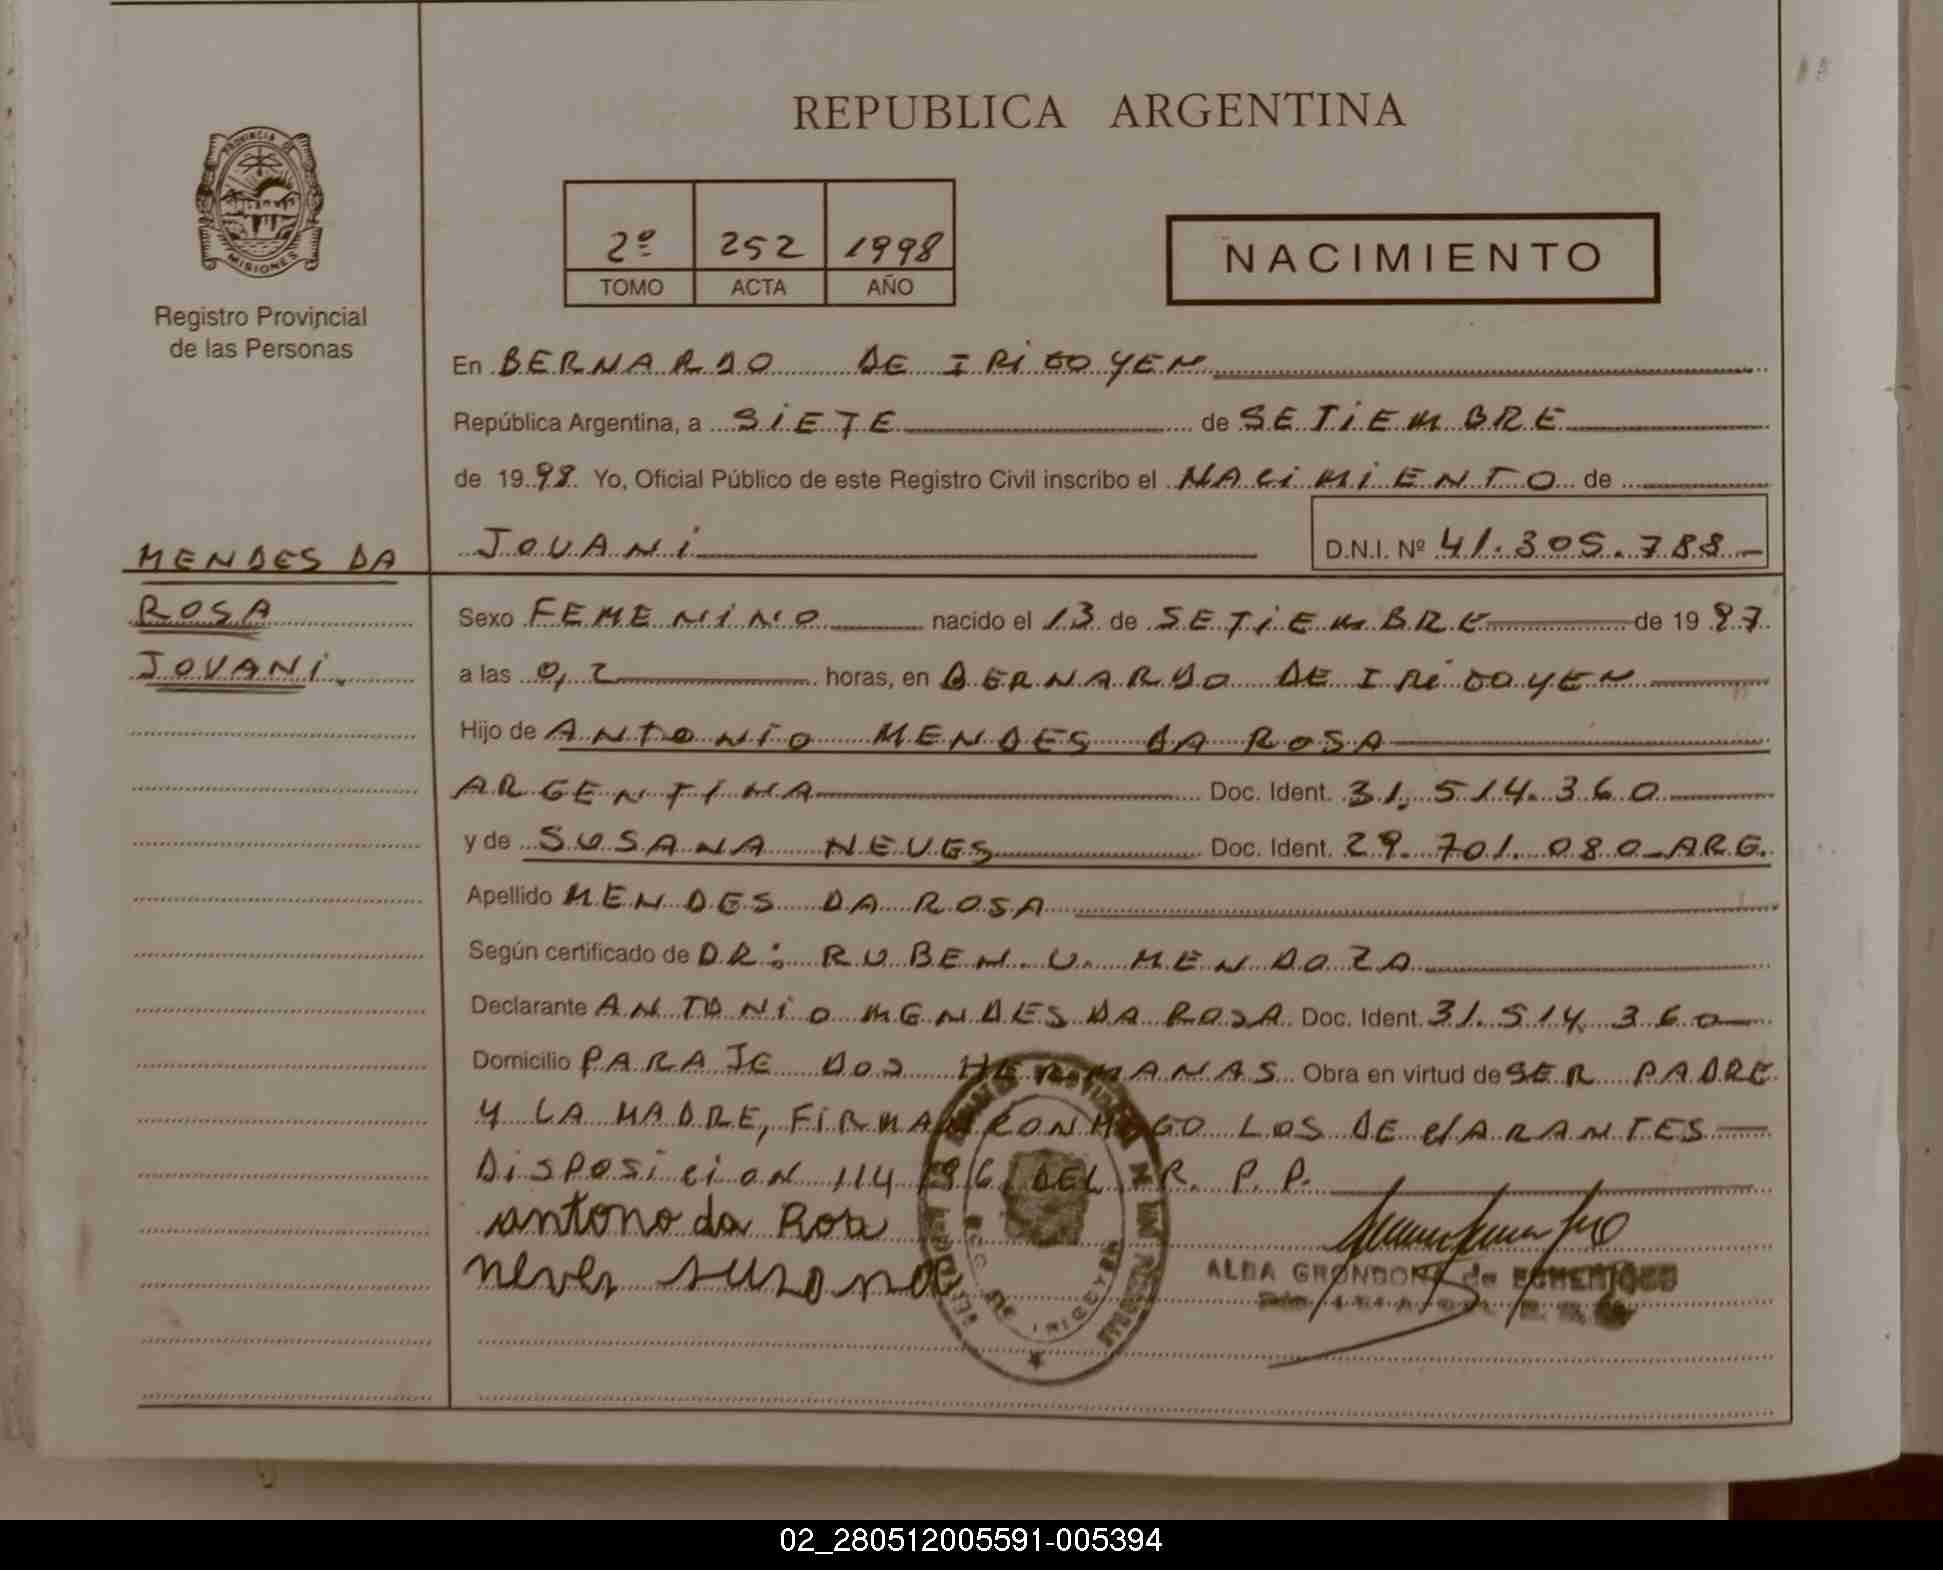 REPUBLICA ARGENTINA
PROVINCIA DE
MISIONES
Registro Provincial
de las Personas
2º 252 1998
TOMO ACTA AÑO
NACIMIENTO
En BERNARDO DE IRIGOYEN
República Argentina, a SIETE de SETIEMBRE
de 1998 Yo, Oficial Público de este Registro Civil inscribo el NACIMIENTO de
JOVANI D.N.I. Nº 41.305.788
MENDES DA
ROSA
JOVANI.
Sexo FEMENINO nacido el 13 de SETIEMBRE de 1997
a las 0,2 horas, en BERNARDO DE IRIGOYEN
Hijo de ANTONIO MENDES DA ROSA
ARGENTINA Doc. Ident. 31.514.360
y de SUSANA NEVES Doc. Ident. 29.701.080 ARG.
Apellido MENDES DA ROSA
Según certificado de DR: RUBEN.U. MENDOZA
Declarante ANTONIO MENDES DA ROSA Doc. Ident. 31.514.360
Domicilio PARAJE DOS HERMANAS Obra en virtud de SER PADRE
Y LA MADRE, FIRMAN CONMIGO LOS DEClARANTES
DISPOSICION 114/96 DEL R.P.P.
antono da Rosa
neves susana
ALBA GRONDONA de
02_280512005591-005394